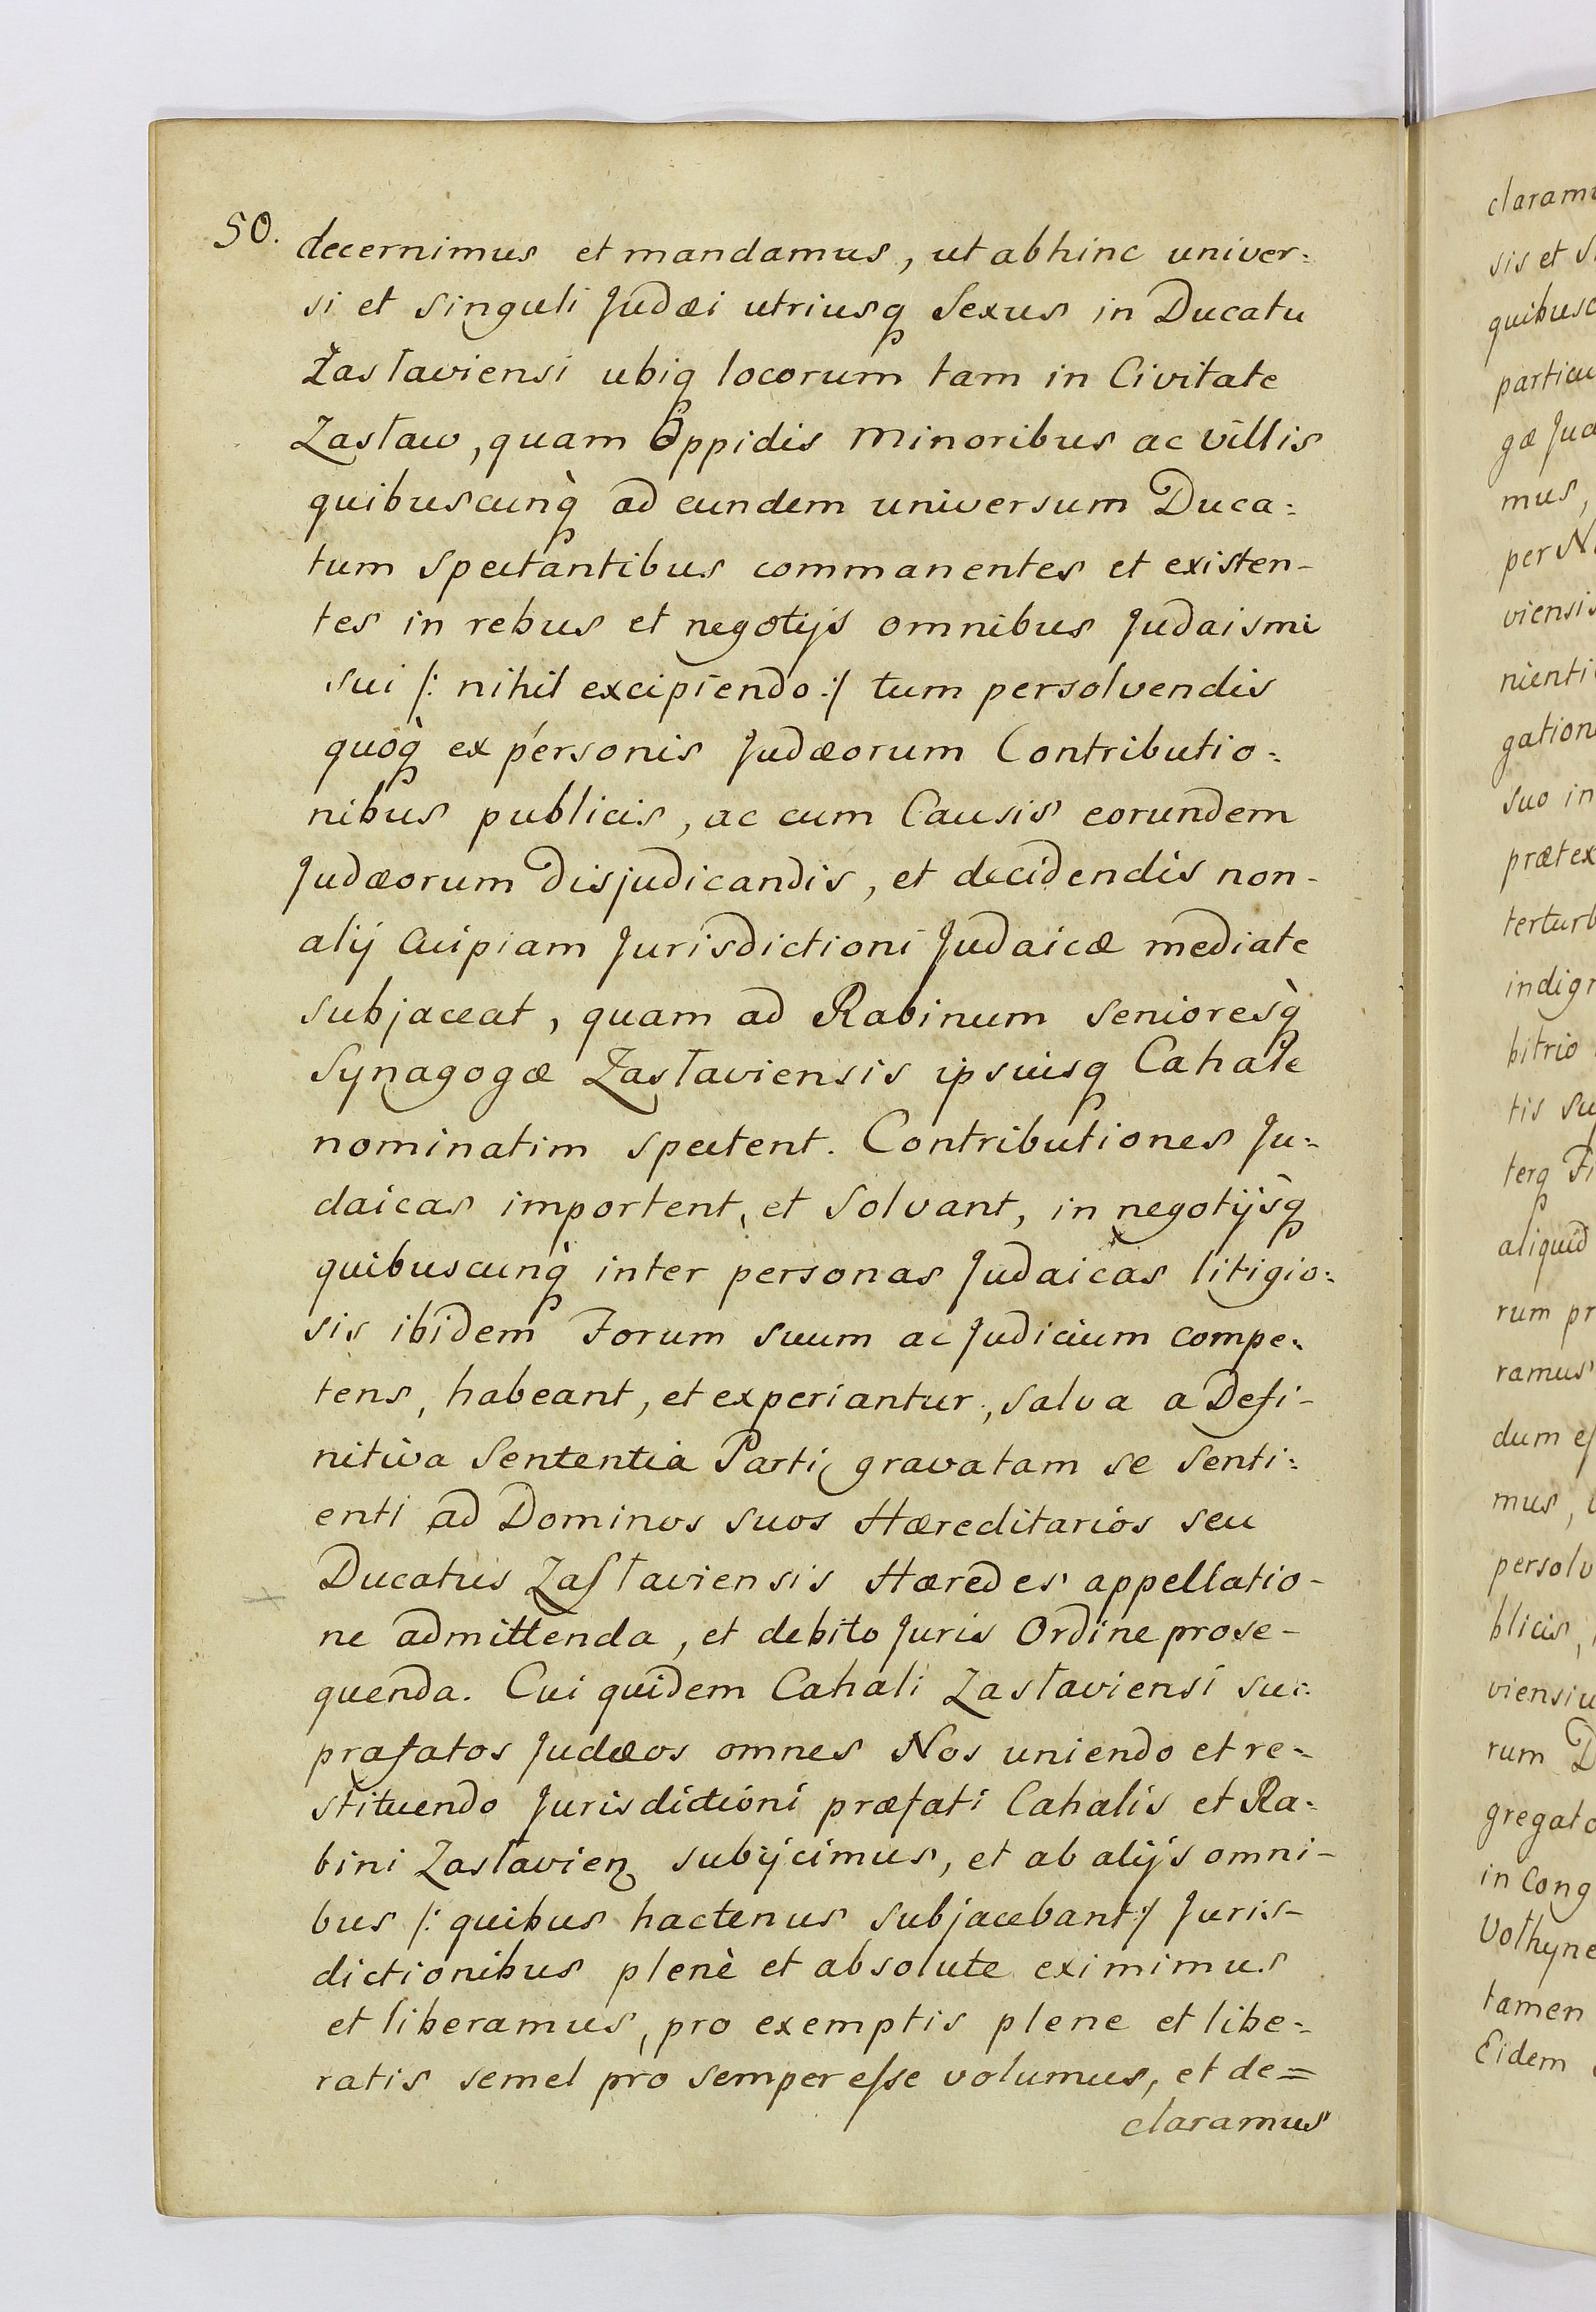 50.
decernimus et mandamus, ut abhinc univer:
si et singuli Judæi utriusq Sexus in Ducatu
Zasławiensi ubiq locorum tam in Civitate
Zasław, quam Oppidis minoribus ac villis
quibuscunq̀ ad eundem universum Duca:
tum spectantibus commanentes et existen-
tes in rebus et negotijs omnibus Judaismi
sui /: nihil excipiendo :/ tum persolvendis
quoq̀ ex personis Judæorum Contributio:
nibus publicis, ac cum Causis eorundem
Judæorum disjudicandis, et decidendis non-
alij cuipiam Jurisdictioni Judaicæ mediate
subjaceat, quam ad Rabinum senioresq̀
Synagogæ Zasławiensis ipsiusq Cahale
nominatim spectent. Contributiones Ju:
daicas importent, et solvant, in negotijsq̀
quibuscunq̀ inter personas Judaicas litigio:
sis ibidem Forum suum ac Judicium compe:
tens, habeant, et experiantur, salva a Defi-
nitiva Sententia Parti gravatam se senti:
enti ad Dominos suos Hæreditarios seu
Ducatus Zasławiensis Hæredes appellatio-
ne admittenda, et debito Juris Ordine prose-
quenda. Cui quidem Cahali Zasławiensi su:
prafatos Judæos omnes Nos uniendo et re:
stituendo Jurisdictioni præfati Cahalis et Ra:
bini Zasławien subijcimus, et ab alijs omni-
bus /: quibus hactenus subjacebant :/ Juris-
dictionibus plenè et absolute eximimus
et liberamus, pro exemptis plene et libe:
ratis semel pro semper esse volumus, et de=
claramus
claramu
sis et S
quibusc
particu
gæ Jud
mus,
per N
viensis
nienti
gation
suo in
prætex
terturb
indign
bitrio
tis su
terq Fi
aliquid
rum pr
ramus
dum es
mus,
persolv
blicis,
viensiu
rum D
gregato
in Cong
Volhyne
tamen
Eidem